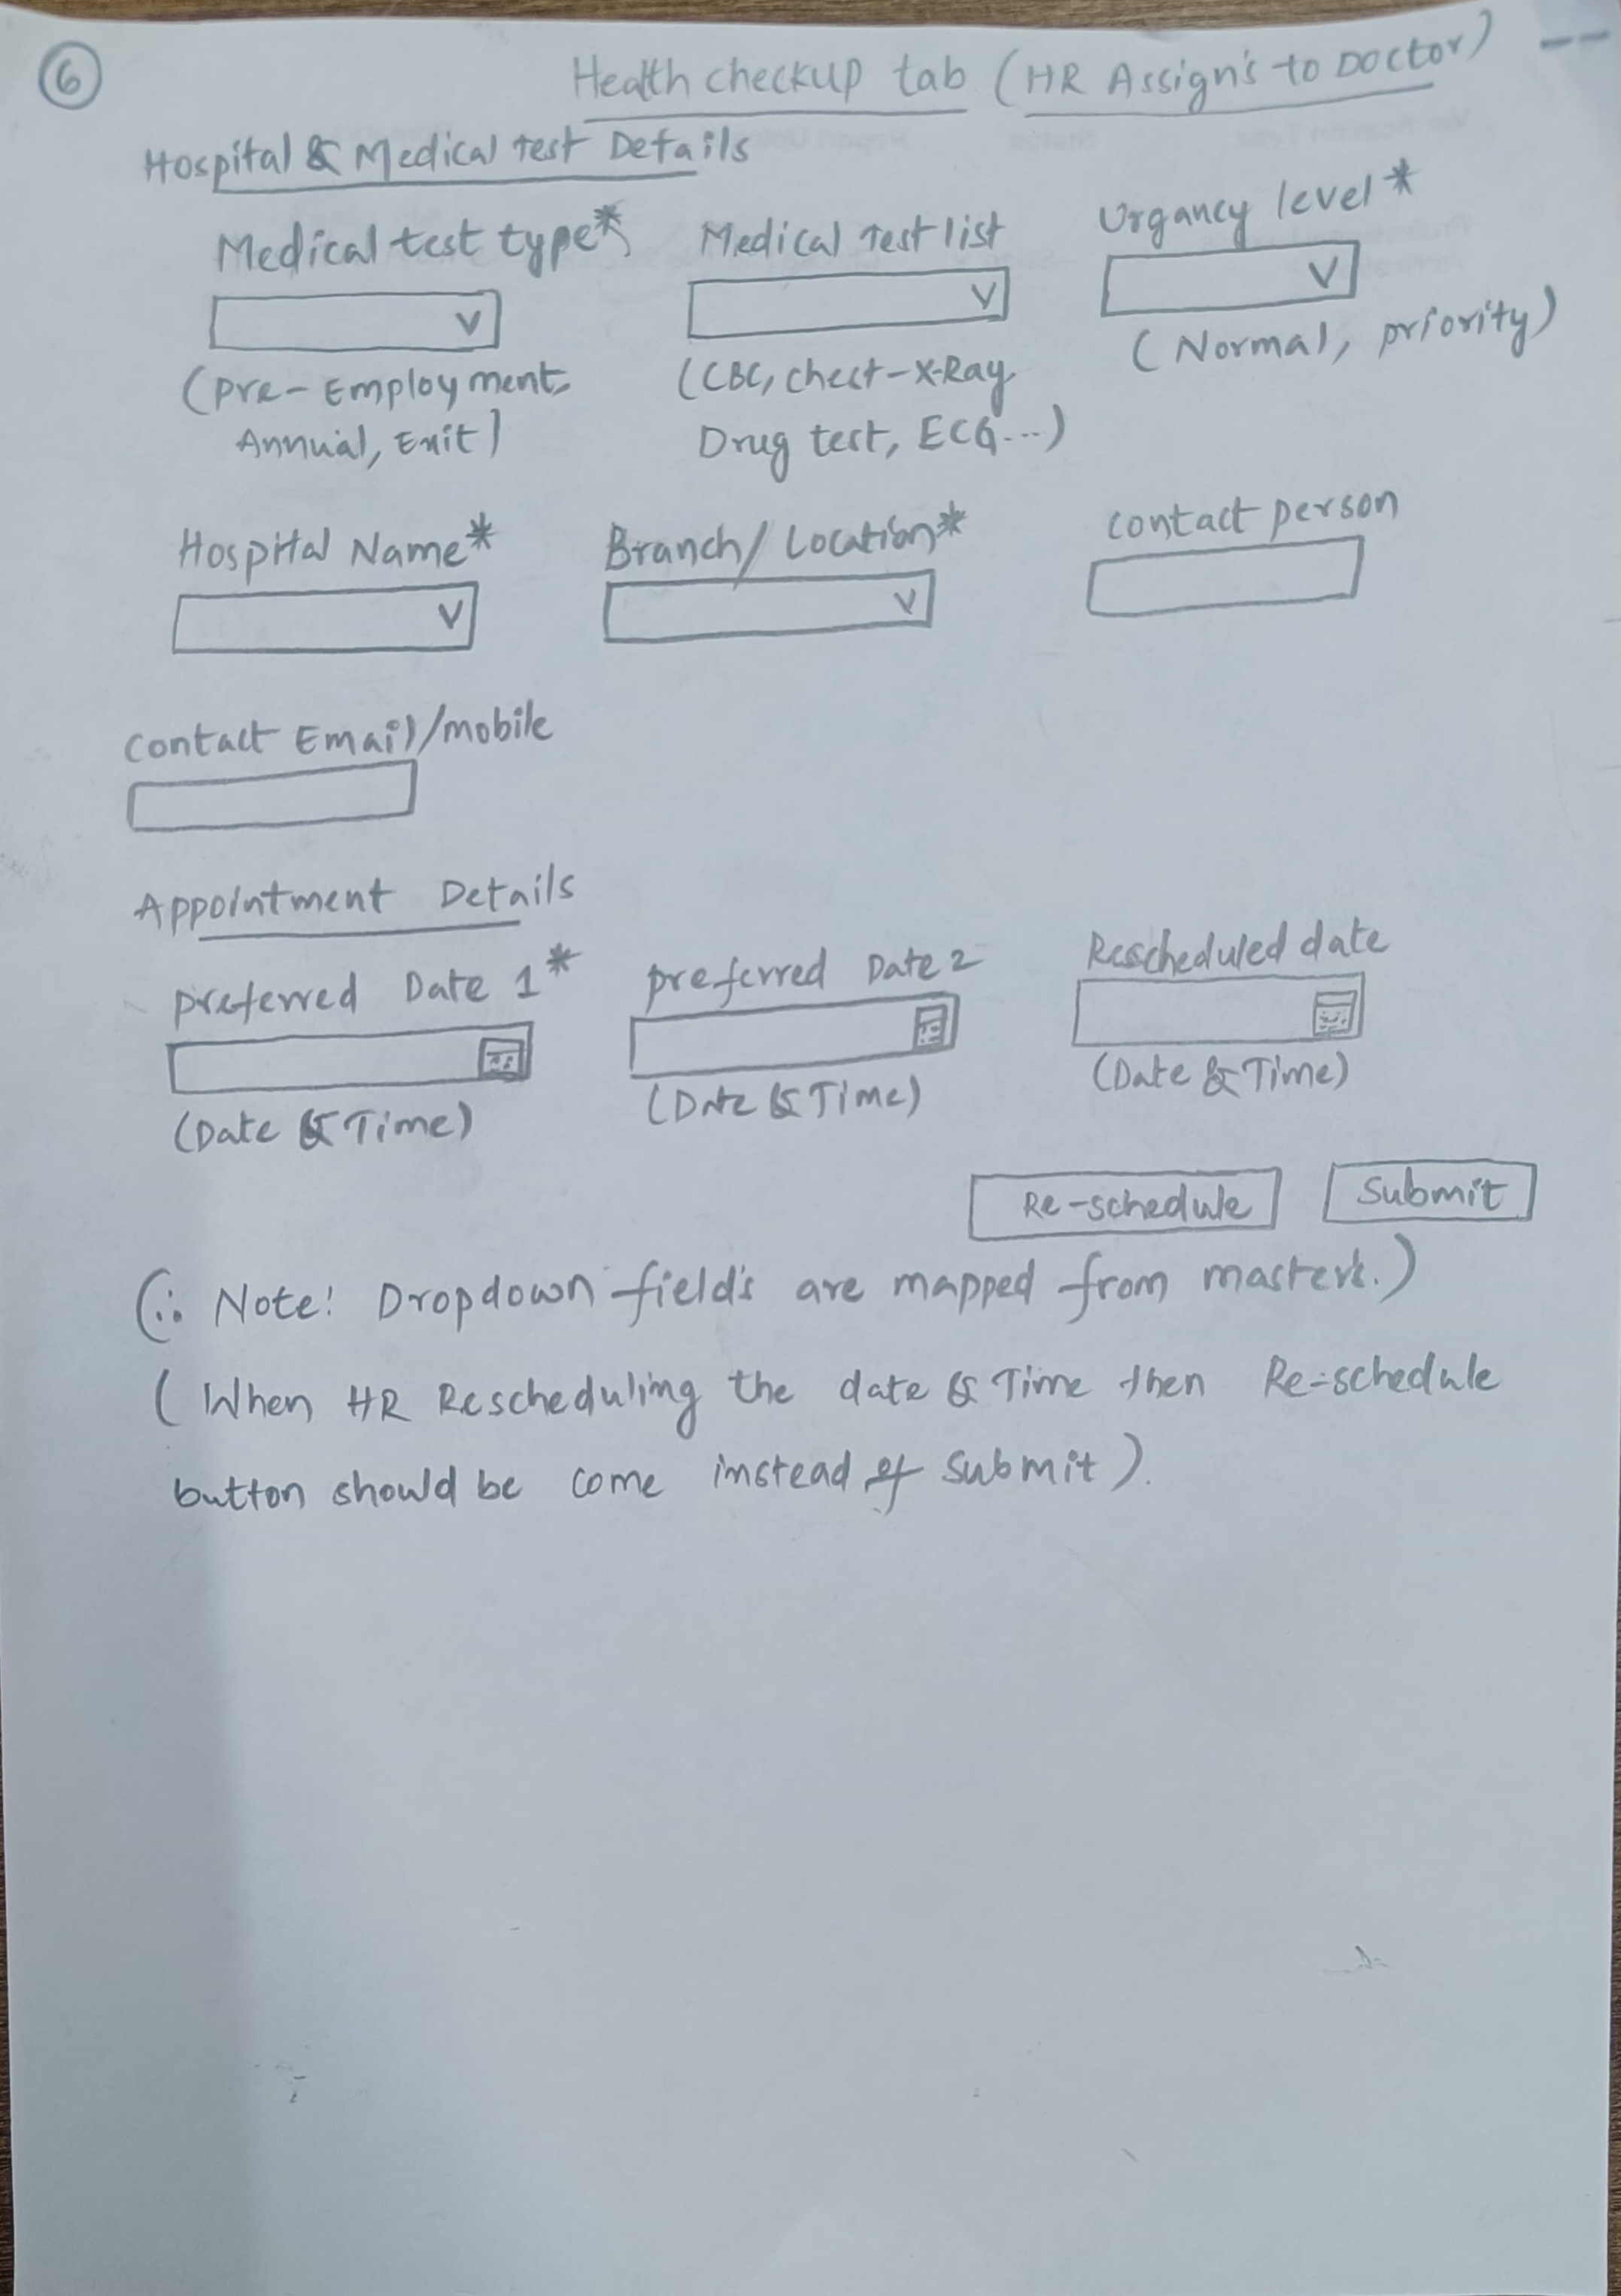 6
Health checkup tab (HR Assign's to Doctor)
Hospital & Medical test Details
Medical test type* Medical Test list Urgancy level*
(Pre-Employment, (CBC, chest-X-Ray (Normal, priority)
Annual, Exit) Drug test, ECG...)
Hospital Name* Branch/Location* contact person
contact Email/mobile
Appointment Details
preferred Date 1* preferred Date 2 Rescheduled date
(Date & Time) (Date & Time) (Date & Time)
Re-schedule Submit
(∴ Note: Dropdown field's are mapped from master's.)
(When HR Rescheduling the date & Time then Re-schedule
button should be come instead of submit).